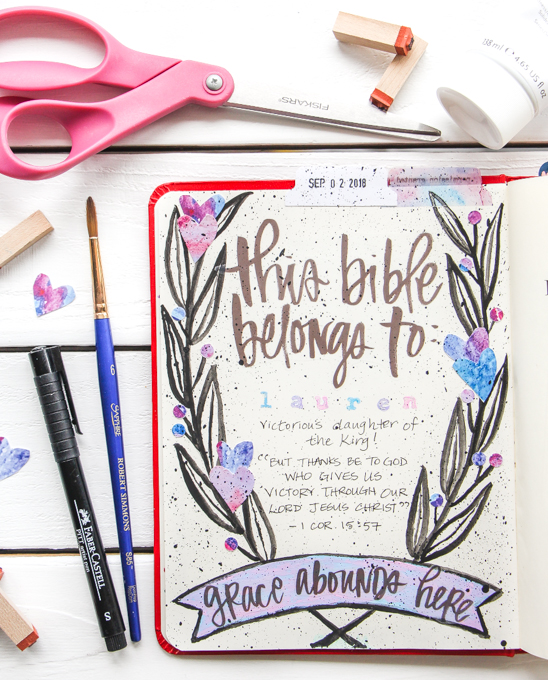 118 ml • 4.65 US fl oz
FISKARS®
SEP. 02 2018
this bible
belongs to:
lauren
victorious daughter of
the King!
"BUT THANKS BE TO GOD
WHO GIVES US
VICTORY THROUGH OUR
LORD JESUS CHRIST"
- 1 COR. 15:57
grace abounds here
6 SAPPHIRE ROBERT SIMMONS S85
FABER-CASTELL
PITT artist pen
S